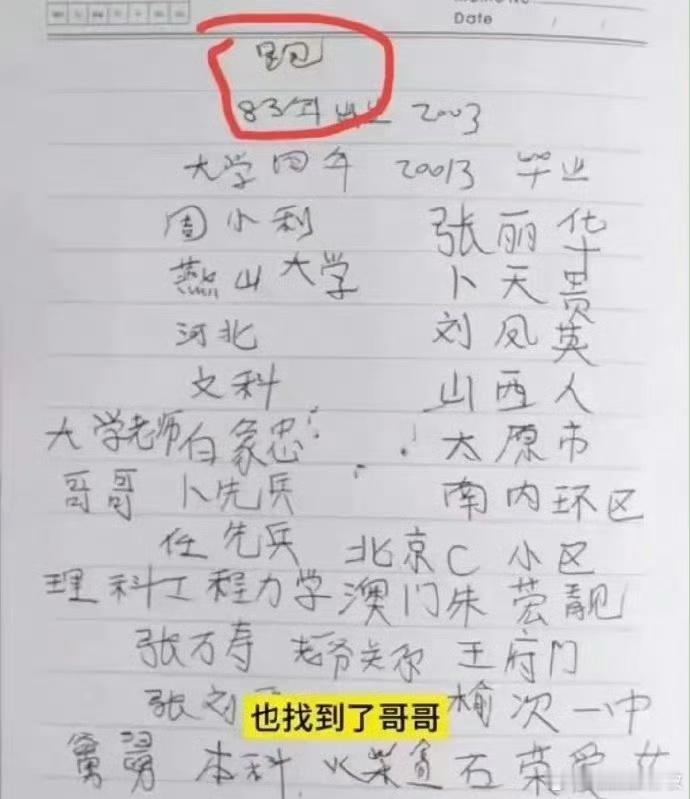 Date / /
83年出生 2003
大学四年 20013 毕业
周小利 张丽华
燕山大学 卜天贵
河北 刘凤英
文科 山西人
大学老师白象忠 太原市
哥哥 卜先兵 南内环区
任先兵 北京C小区
理科工程力学 澳门朱 靓
张万寿 关系 王府门
张刘 榆次一中
本科 火柴 石荣爱 女
也找到了哥哥